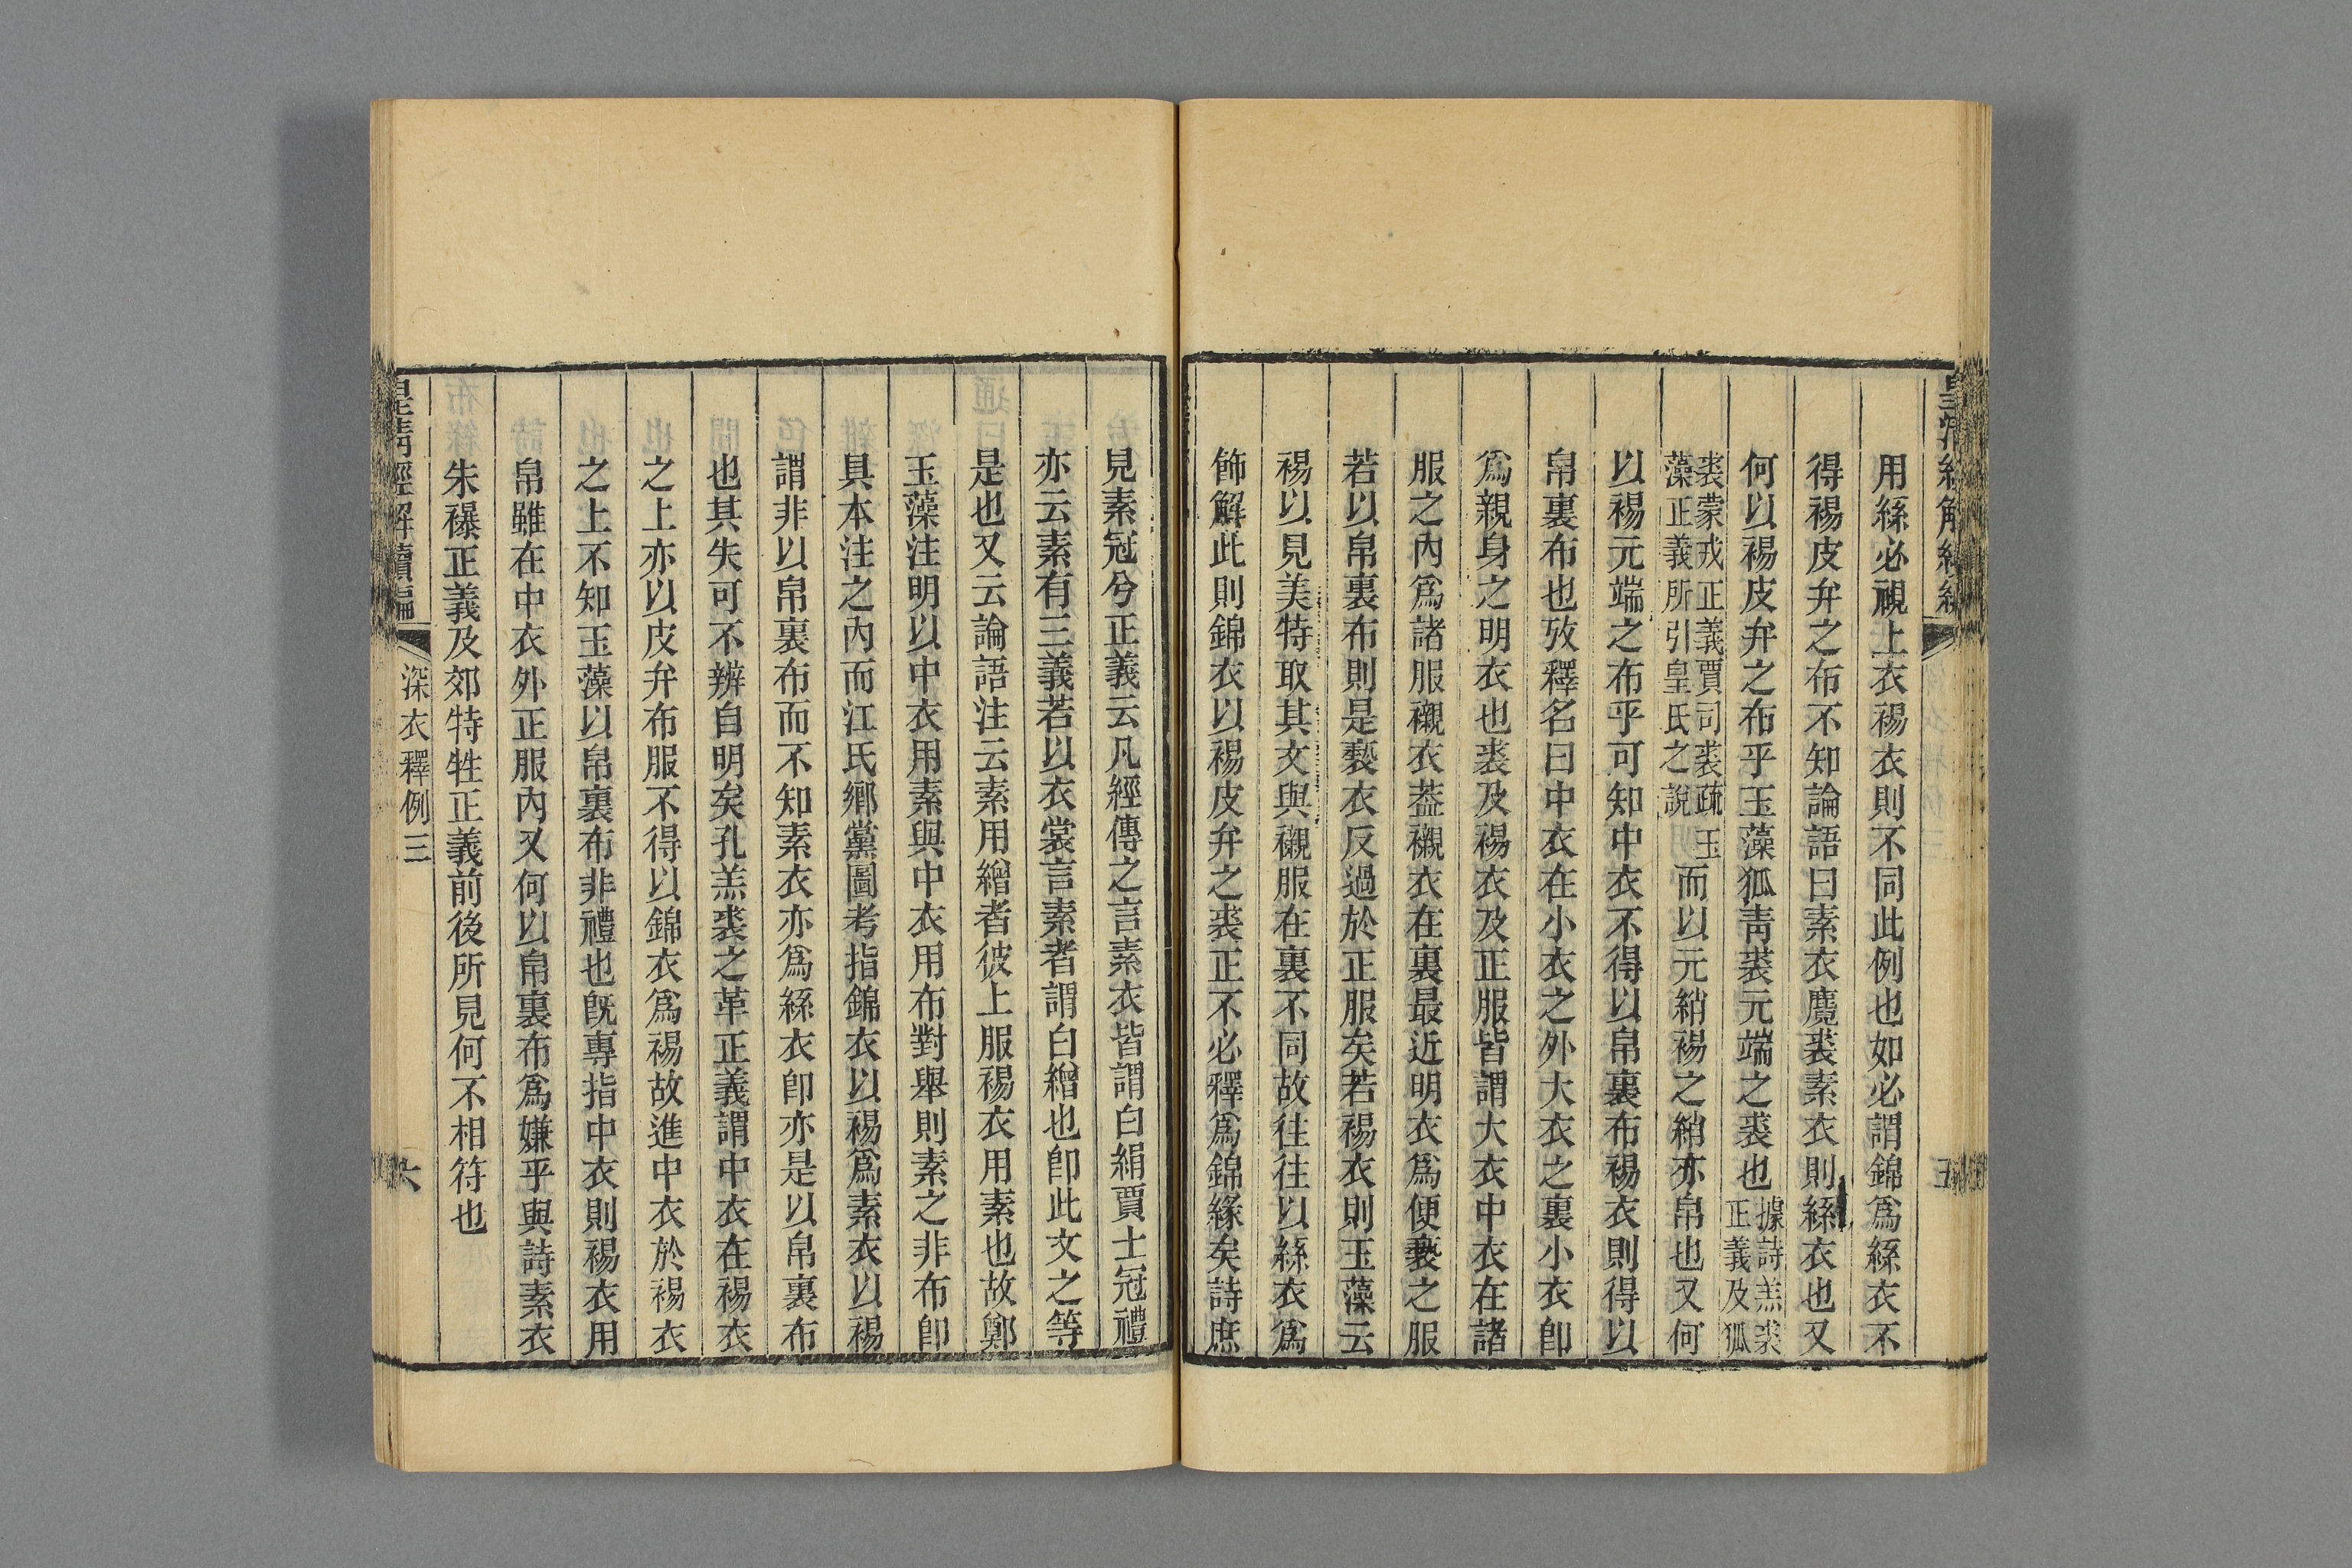 用絲必視上衣裼衣則不同此例也如必謂錦爲絲衣不
得裼皮弁之布不知論語曰素衣麑裘素衣則絲衣也又
何以裼皮弁之布乎玉藻狐靑裘元端之裘也據詩羔裘正義及狐
裘蒙戎正義賈司裘疏玉藻正義所引皇氏之說而以元綃裼之綃亦帛也又何
以裼元端之布乎可知中衣不得以帛裏布裼衣則得以
帛裏布也攷釋名曰中衣在小衣之外大衣之裏小衣卽
爲親身之明衣也裘及裼衣及正服皆謂大衣中衣在諸
服之內爲諸服襯衣葢襯衣在裏最近明衣爲便褻之服
若以帛裏布則是褻衣反過於正服矣若裼衣則玉藻云
裼以見美特取其文與襯服在裏不同故往往以絲衣爲
飾解此則錦衣以裼皮弁之裘正不必釋爲錦緣矣詩庶
見素冠兮正義云凡經傳之言素衣皆謂白絹賈士冠禮
亦云素有三義若以衣裳言素者謂白繒也卽此文之等
是也又云論語注云素用繒者彼上服裼衣用素也故鄭
玉藻注明以中衣用素與中衣用布對舉則素之非布卽
具本注之內而江氏鄉黨圖考指錦衣以裼爲素衣以裼
謂非以帛裏布而不知素衣亦爲絲衣卽亦是以帛裏布
也其失可不辨自明矣孔羔裘之革正義謂中衣在裼衣
之上亦以皮弁布服不得以錦衣爲裼故進中衣於裼衣
之上不知玉藻以帛裏布非禮也旣專指中衣則裼衣用
帛雖在中衣外正服內又何以帛裏布爲嫌乎與詩素衣
朱襮正義及郊特牲正義前後所見何不相符也
皇淸經解續編
深衣釋例三
六